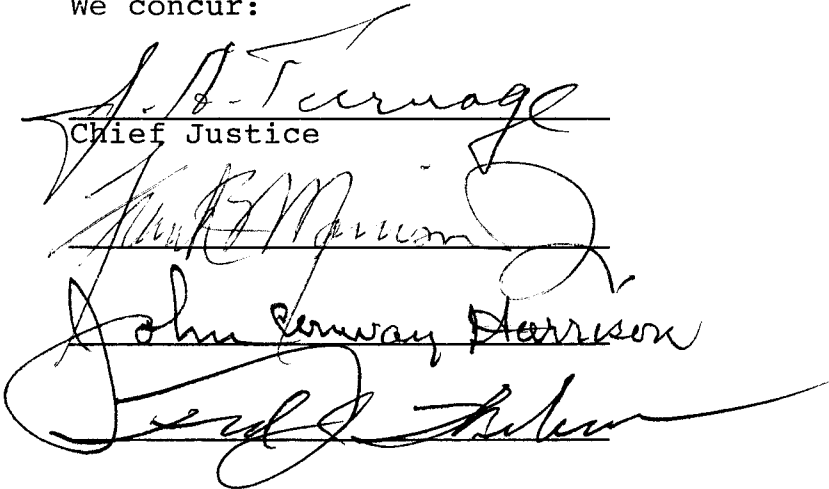 We concur:
J. A. Turnage
Chief Justice
Frank B Morrison
John Conway Harrison